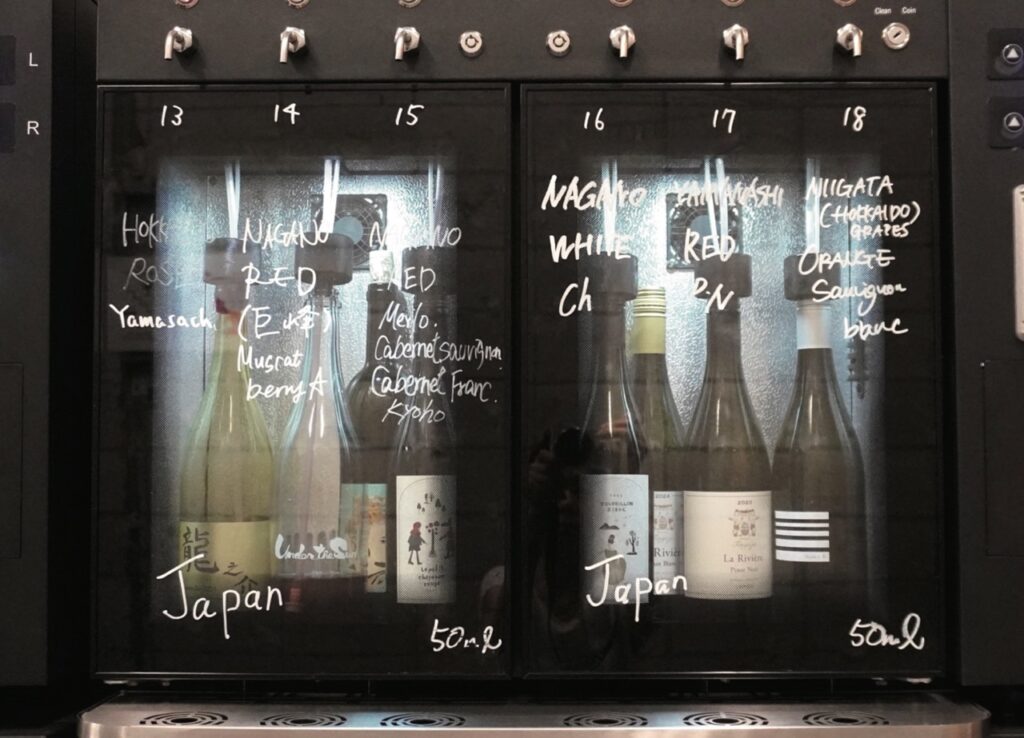 Clean Coin
L
R
13 14 15
NAGANO
RED
(巨峰)
Muscat
berry A
NAGANO
RED
Merlo.
Cabernet sauvignon
Cabernet Franc.
Kyoho
Yamasach.
16 17 18
NAGANO
WHITE
Ch
YAMANASHI
RED
P.N
NIIGATA
(HOKKAIDO)
GRAPES
ORANGE
Sauvignon
blanc
龍
Under the Sun
Japan
50ml
2020
La Rivière
Pinot Noir
Japan
50ml